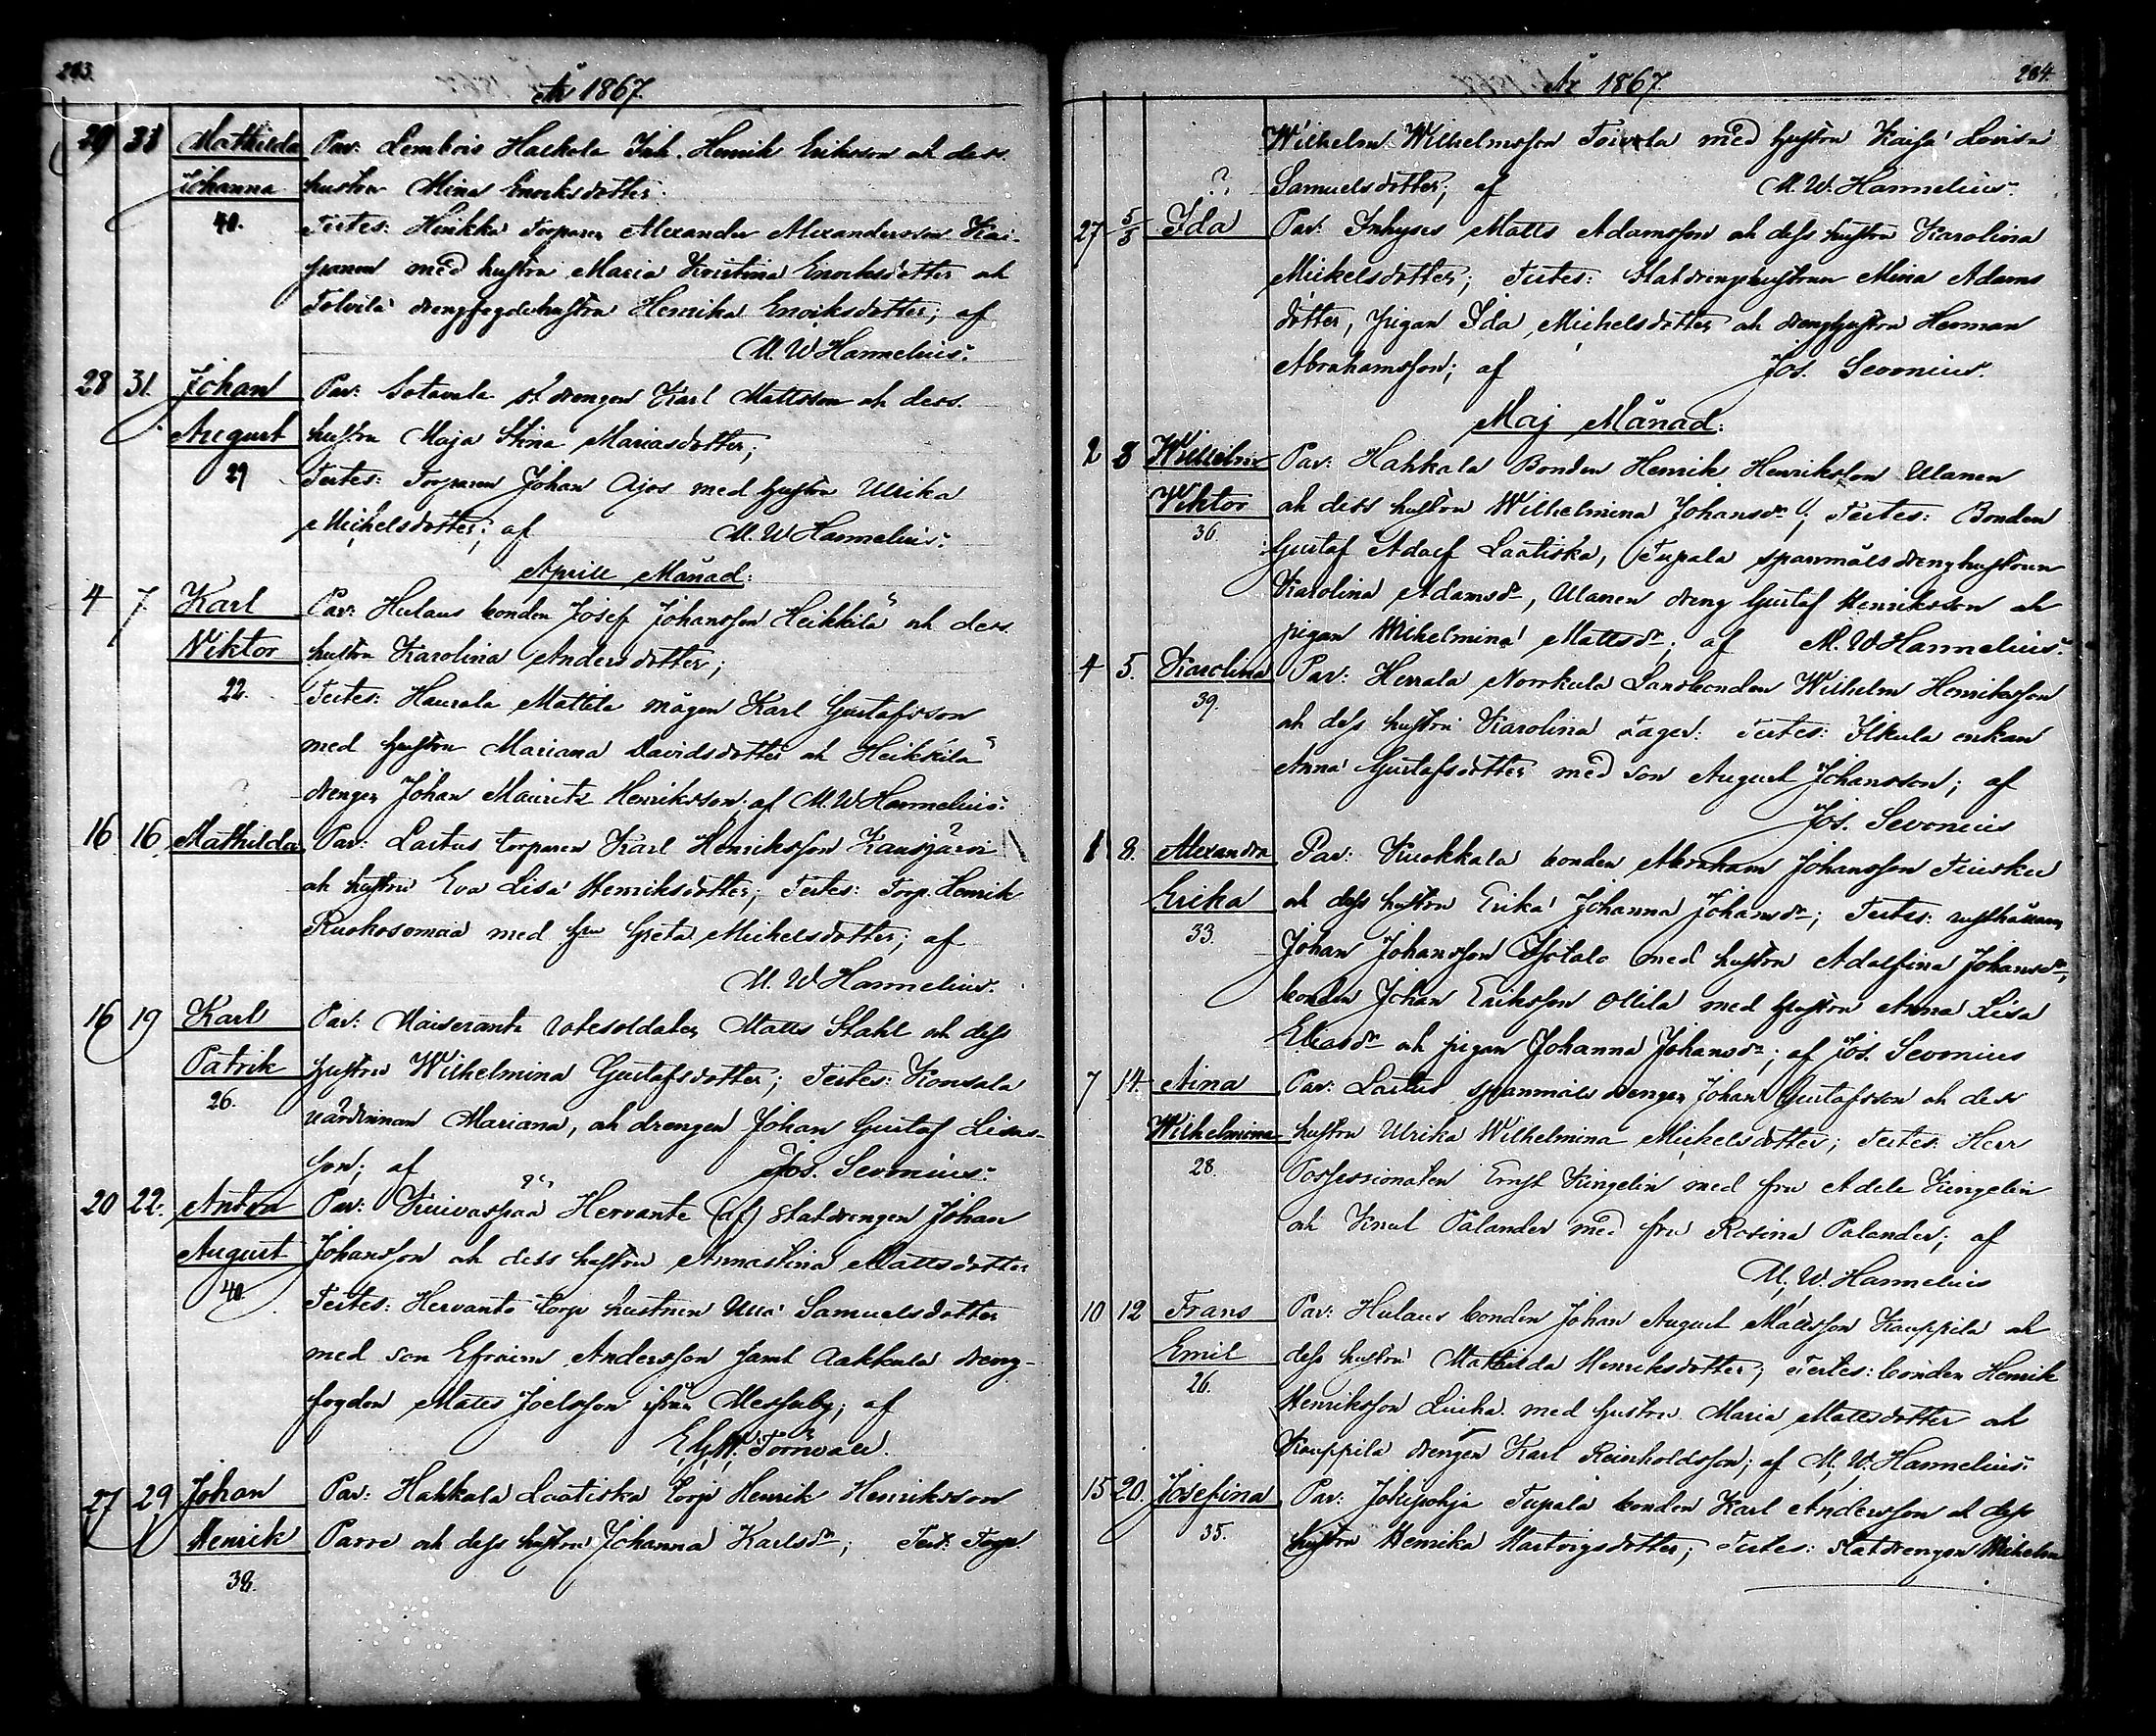 203.
År 1867.
29 31 Mathilda Par: Lembois Hackola Inh. Henrik Eriksson och dess
Johanna hustru Mina Enocksdotter.
40. Testes: Heikka Torparen Alexander Alexandersson Kai-
panen med hustru Maria Kristina Enocksdotter och
Tolvila drengfogdehustru Henrika Enoiksdotter; af
M. W. Hannelius.
28 31. Johan Par: Sotavala st. drengen Karl Mattsson och dess
August hustru Maja Stina Mariasdotter;
29 Testes: Torparen Johan Ajos med hustru Ulrika
Michelsdotter; af M. W. Hannelius.
Aprill Månad:
4 7 Karl Par: Hulaus bonden Josef Johansson Heikkilä och dess
Viktor hustru Karolina Andersdotter;
22. Testes: Haurala Mattila mågen Karl Gustafsson
med hustru Mariana Davidsdotter och Heikkilä
drengen Johan Mauritz Henriksson; af M. W. Hannelius.
16 16 Mathilda Par: Lastus torparen Karl Henriksson Kausjärvi
och hustru Eva Lisa Henriksdotter; Testes: Torp. Henrik
Ruohosomaa med hru Greta Michelsdotter; af
M. W. Hannelius.
16 19 Karl Par: Moiserants rotesoldaten Matts Stahl och dess
Patrik hustru Wilhelmina Gustafsdotter; Testes: Konsala
26. värdinnan Mariana, och drengen Johan Gustaf Lisas-
son; af Jos. Sevonius.
20 22. Anton Par: Kuivaspää Hervante (af) Statdrengen Johan
August Johansson och dess hustru Annastina Mattsdotter
40 Testes: Hervanto torp hustrun Ulla Samuelsdotter
med son Efraim Andersson samt Aakkula dreng-
fogden Matts Joelsson ifrån Messuby; af
E. G. W. Törnvall.
27 29 Johan Par: Hahkala Laatiska torp Henrik Henriksson
Henrik Parre och dess hustru Johanna Karlsdr; Test: Torp.
38.
204.
År 1867.
Wilhelm Wilhelmsson Toivola med hustru Kaisa Lovisa
Samuelsdotter; af M. W. Hannelius.
27 5/5 Ida Par: Inhyses Matts Adamsson och dess hustru Karolina
Mickelsdotter; Testes: Statdrengshustrun Mina Adams
dotter, pigan Ida Michelsdotter och drenghustru Herman
Abrahamsson; af Jos. Sevonius.
Maj Månad:
2 8 Wilhelm Par: Hahkala Bonden Henrik Henriksson Ulanen
Viktor och dess hustru Wilhelmina Johansdr; Testes: Bonden
36. Gustaf Adolf Laatiska, Tupala spanmålsdrenghustrun
Karolina Adamsdr, Ulanen dreng Gustaf Henriksson och
pigan Wilhelmina Mattsdr; af M. W. Hannelius.
4 5. Karolina Par: Herrala Norrkula Lansbonden Wilhelm Henriksson
39. och dess hustru Karolina Tager: Testes: Ilkula enkan
Anna Gustafsdotter med son August Johansson; af
Jos. Sevonius
1 8. Alexandra Par: Kuokkala bonden Abraham Johansson Tuisku
Erika och dess hustru Erika Johanna Johansdr; Testes:
33. Johan Johansson Isotalo med hustru Adolfina Johansdr,
bonden Johan Eriksson Ollila med hustru Anna Lisa
Eliasdr och pigan Johanna Johansdr; af Jos. Sevonius
7 14. Aina Par: Lastus spanmåls drengen Johan Gustafsson och dess
Wilhelmina hustru Ulrika Wilhelmina Michelsdotter; Testes: Herr
28. Possessionaten Ernst Kingelin med fru Adele Kingelin
och Knut Palander med fru Rosina Palander; af
M. W. Hannelius
10 12 Frans Par: Hulaus bonden Johan August Mattsson Kauppila och
Emil dess hustru Mathilda Henriksdotter; Testes: bonden Henrik
26. Henriksson Liuha med hustru Maria Mattsdotter och
Kauppila drengen Karl Reinholdsson; af M. W. Hannelius.
15 20. Josefina Par: Jokipohja Tupala bonden Karl Andersson och dess
35. hustru Henrika Hartvigsdotter; Testes: Statdrengen Wilhelm